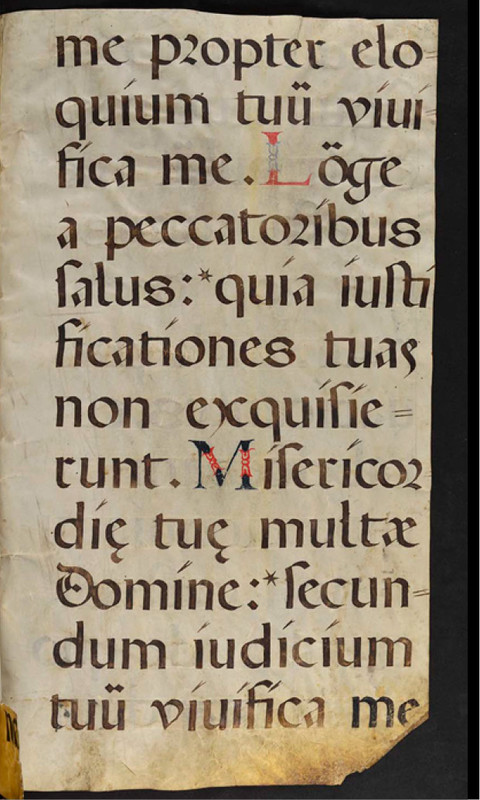 me propter elo
quium tuū viui
fica me. Lōge
a peccatoribus
salus:*quia iusti
ficationes tuas
non exquisie=
runt. Misericor
dię tuę multæ
Domine:*secun=
dum iudicium
tuū viuifica me